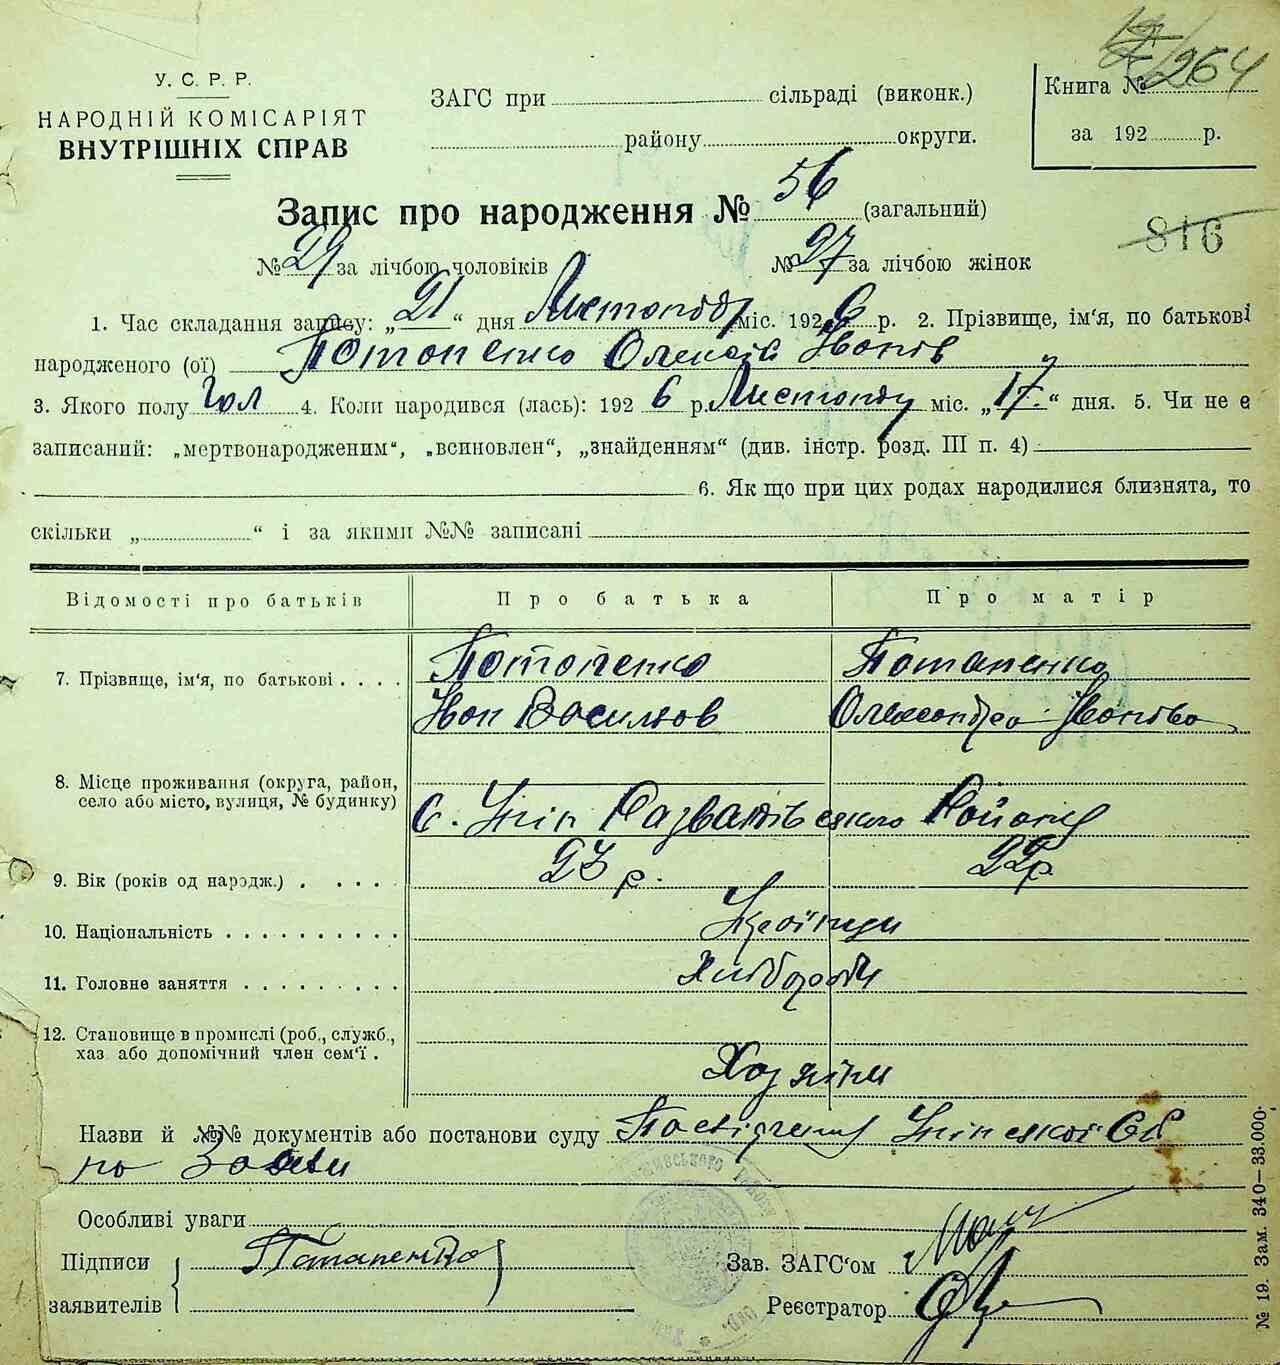 264
У. С. Р. Р.
НАРОДНІЙ КОМІСАРІЯТ
ВНУТРІШНІХ СПРАВ
ЗАГС при сільраді (виконк.)
району округи.
Книга №
за 192 р.
Запис про народження № 56 (загальний)
816
№ 29 за лічбою чоловіків № 27 за лічбою жінок
1. Час складання запису: „21“ дня Листопада міс. 1926 р. 2. Прізвище, ім'я, по батькові
народженого (ої) Потопенко Олексій Іванів
3. Якого полу Чол 4. Коли народився (лась): 1926 р. Листопаду міс. „17.“ дня. 5. Чи не є
записаний: „мертвонародженим“, „всиновлен“, „знайденням“ (див. інстр. розд. III п. 4)
6. Як що при цих родах народилися близнята, то
скільки „ “ і за якими №№ записані
Відомості про батьків Про батька Про матір
7. Прізвище, ім'я, по батькові . . . . Потопенко Потапенко
Іван Васильов Олександра Іванівна
8. Місце проживання (округа, район,
село або місто, вулиця, № будинку) С. Района
9. Вік (років од народж.) . . . . . 23 р. 22 р.
10. Національність . . . . . . . . . . Українци
11. Головне заняття . . . . . . . . . Хлібороби
12. Становище в промислі (роб., служб.,
хаз або допомічний член сем'ї . Хозяїни
Назви й №№ документів або постанови суду
по Заяви
Особливі уваги
Підписи Потапенко Зав. ЗАГС'ом
заявителів Реєстратор
№ 19. Зам. 340—33.000.